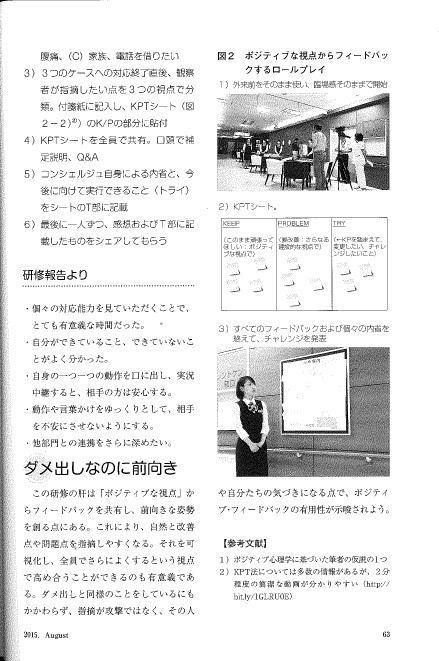 腹痛、（C）家族、電話を借りたい
3）3つのケースへの対応終了直後、観察
者が指摘したい点を3つの視点で分
類。付箋紙に記入し、KPTシート（図
2－2）²⁾）のK/Pの部分に貼付
4）KPTシートを全員で共有。口頭で補
足説明、Q&A
5）コンシェルジュ自身による内省と、今
後に向けて実行できること（トライ）
をシートのT部に記載
6）最後に一人ずつ、感想およびT部に記
載したものをシェアしてもらう
研修報告より
・個々の対応能力を見ていただくことで、
とても有意義な時間だった。
・自分ができていること、できていないこ
とがよく分かった。
・自身の一つ一つの動作を口に出し、実況
中継すると、相手の方は安心する。
・動作や言葉かけをゆっくりとして、相手
を不安にさせないようにする。
・他部門との連携をさらに深めたい。
ダメ出しなのに前向き
この研修の肝は「ポジティブな視点」か
らフィードバックを共有し、前向きな姿勢
を創る点にある。これにより、自然と改善
点や問題点を指摘しやすくなる。それを可
視化し、全員でさらによくするという視点
で高め合うことができるのも有意義であ
る。ダメ出しと同様のことをしているにも
かかわらず、指摘が攻撃ではなく、その人
図2　ポジティブな視点からフィードバッ
クするロールプレイ
1）外来前をそのまま使い、臨場感そのままで開始
2）KPTシート。
KEEP PROBLEM TRY
（このまま頑張って （要改善：さらなる （←KPを踏まえて、
ほしい：ポジティ 建設的な視点で） 変更したい、チャレ
ブな視点で） ンジしたいこと）
3）すべてのフィードバックおよび個々の内省を
踏えて、チャレンジを発表
や自分たちの気づきになる点で、ポジティ
ブ・フィードバックの有用性が示唆されよう。
【参考文献】
1）ポジティブ心理学に基づいた筆者の仮説の1つ
2）KPT法については多数の情報があるが、2分
程度の簡潔な動画が分かりやすい（http://
bit.ly/1GLRU0E）
2015. August
63